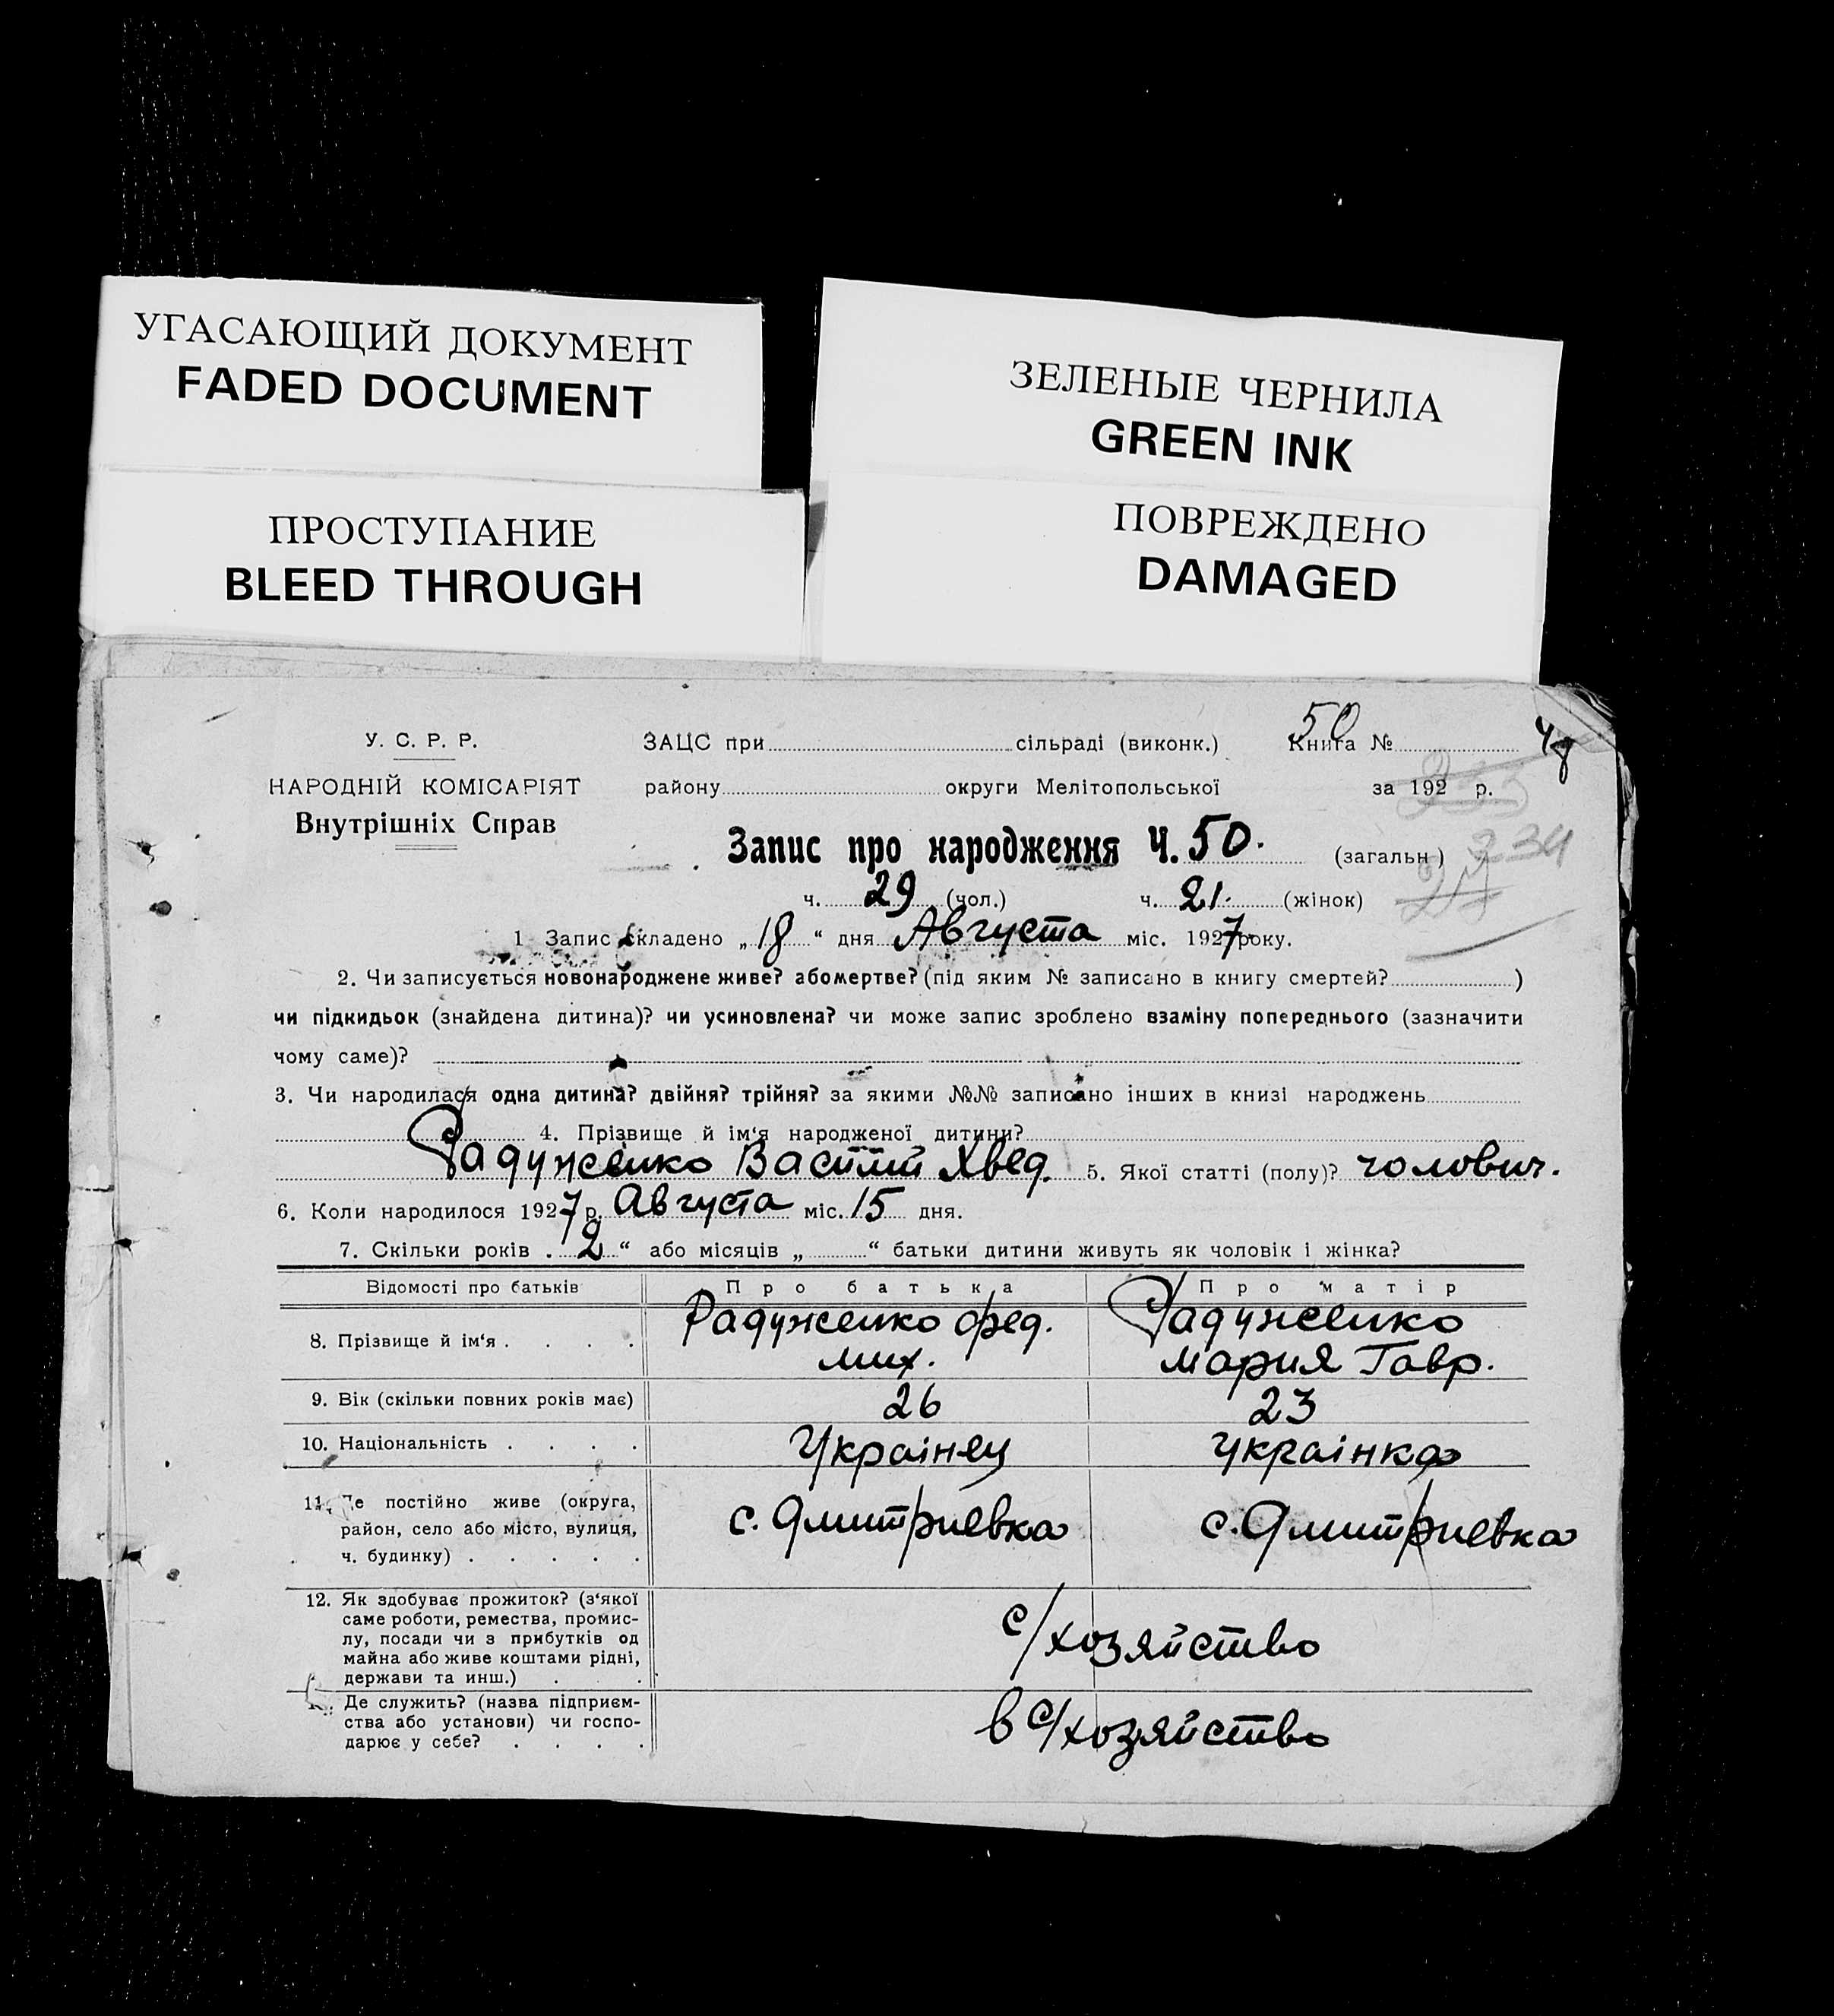 УГАСАЮЩИЙ ДОКУМЕНТ
FADED DOCUMENT
ЗЕЛЕНЫЕ ЧЕРНИЛА
GREEN INK
ПРОСТУПАНИЕ
BLEED THROUGH
ПОВРЕЖДЕНО
DAMAGED
У. С. Р. Р.
НАРОДНІЙ КОМІСАРІЯТ
Внутрішніх Справ
ЗАЦС при сільраді (виконк.)
50
Книга №
48
району округи Мелітопольської
за 192 р.
Запис про народження Ч. 50. (загальн )
234
ч. 29 (чол.) ч. 21. (жінок)
1 Запис складено „18“ дня Августа міс. 1927 року.
2. Чи записується новонароджене живе? або мертве? (під яким № записано в книгу смертей? )
чи підкидьок (знайдена дитина)? чи усиновлена? чи може запис зроблено взаміну попереднього (зазначити
чому саме)?
3. Чи народилася одна дитина? двійня? трійня? за якими №№ записано інших в книзі народжень
4. Прізвище й ім‘я народженої дитини?
Радуженко Василий Хвед. 5. Якої статті (полу)? чолович.
6. Коли народилося 1927 р. Августа міс. 15 дня.
7. Скільки років „2“ або місяців „ “ батьки дитини живуть як чоловік і жінка?
Відомості про батьків Про батька Про матір
8. Прізвище й ім‘я . . . . Радуженко Фед. Мих. Радуженко Мария Гавр.
9. Вік (скільки повних років має) 26 23
10. Національність . . . . Украінец украінка
11. Де постійно живе (округа,
район, село або місто, вулиця,
ч. будинку) . . . . .
с. Дмитриевка с. Дмитриевка
12. Як здобуває прожиток? (з‘якої
саме роботи, ремества, промис-
лу, посади чи з прибутків од
майна або живе коштами рідні,
держави та инш.) . . .
с/хозяйство
Де служить? (назва підприєм-
ства або установи) чи госпо-
дарює у себе? . . . .
в с/хозяйство